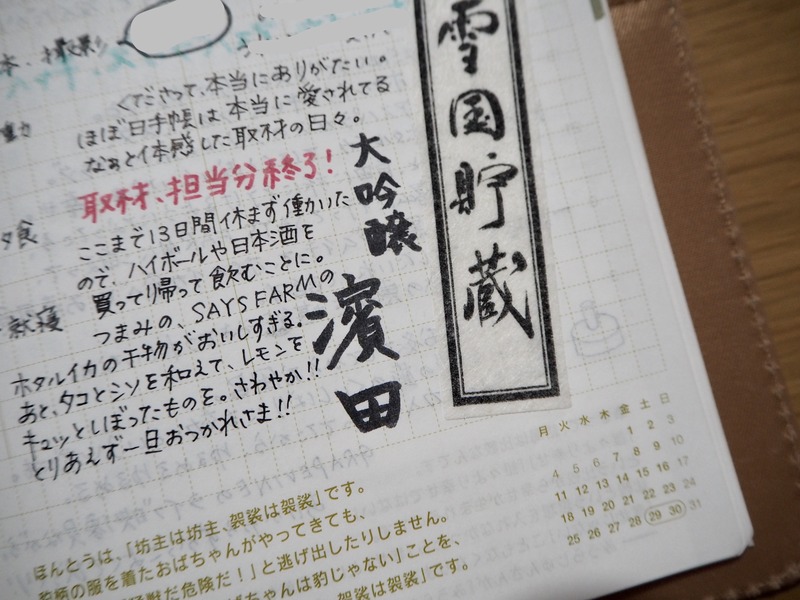 くださって、本当にありがたい。
ほぼ日手帳は本当に愛されてる
なぁと体感した取材の日々。
取材、担当分終了!
夕食
ここまで13日間休まず働いた
ので、ハイボールや日本酒を
買って帰って飲むことに。
就寝
つまみの、SAYS FARMの
ホタルイカの干物がおいしすぎる。
あと、タコとシソを和えて、レモンを
キュッとしぼったものを。さわやか!!
とりあえず一旦おつかれさま!!
大吟醸
濱田
雪国貯蔵
月 火 水 木 金 土 日
1 2 3
4 5 6 7 8 9 10
11 12 13 14 15 16 17
18 19 20 21 22 23 24
25 26 27 28 29 30 31
ほんとうは、「坊主は坊主、袈裟は袈裟」です。
柄の服を着たおばちゃんがやってきても、
だ危険だ!」と逃げ出したりしません。
ちゃんは豹じゃない」ことを、
袈裟は袈裟」です。